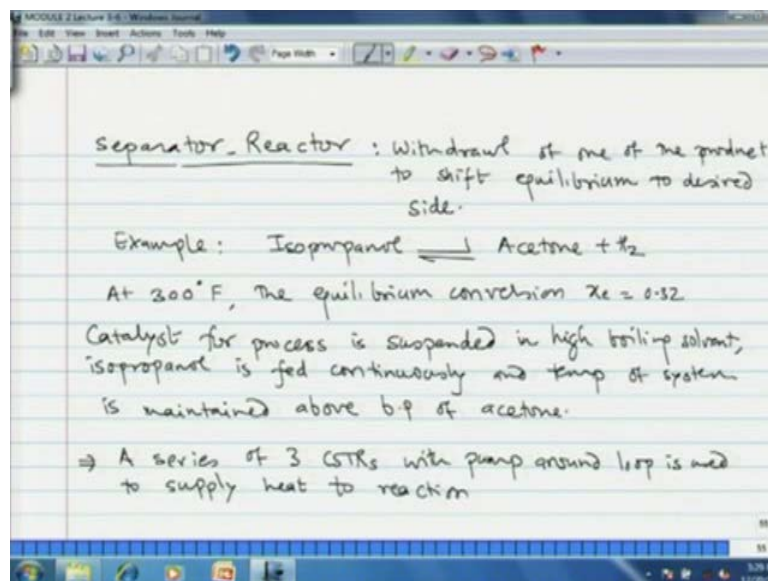 MODULE 2 Lecture 3-6 - Windows Journal
File Edit View Insert Actions Tools Help
Page Width
Separator - Reactor : Withdrawl of one of the product
to shift equilibrium to desired
side.
Example : Isopropanol ⇌ Acetone + H₂
At 300°F, The equilibrium conversion xe = 0.32
Catalyst for process is suspended in high boiling solvent,
isopropanol is fed continuously and temp of system
is maintained above b.p of acetone.
⇒ A series of 3 CSTRs with pump around loop is used
to supply heat to reaction
55
55